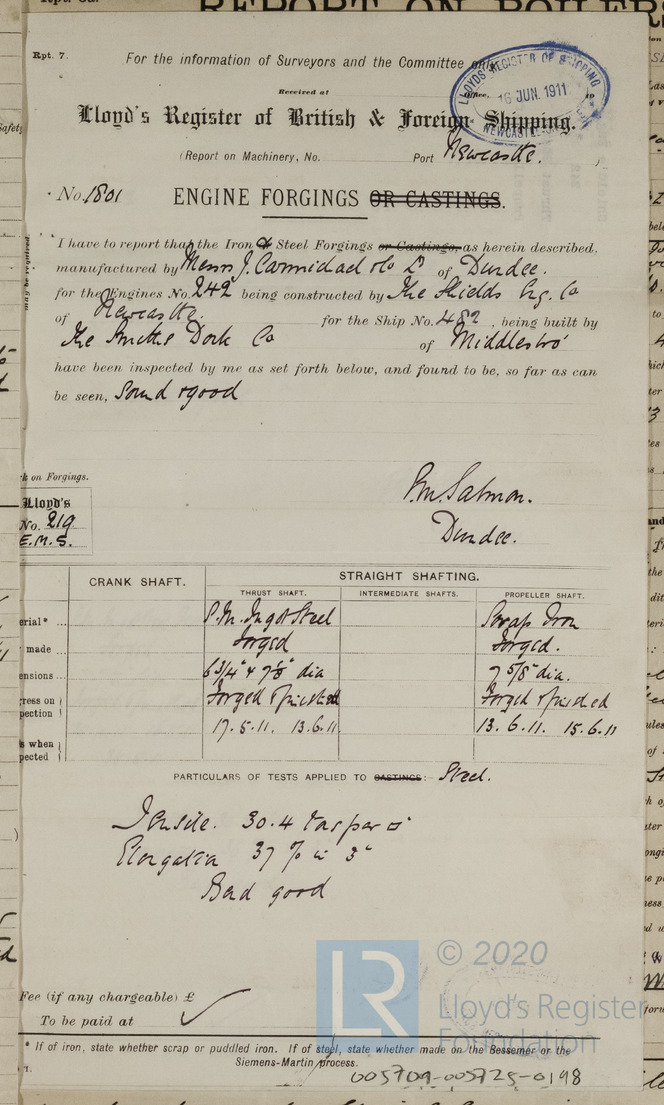 REPORT ON BOILERS
Rpt. 7.
For the information of Surveyors and the Committee only.
Received at Office,
LLOYD'S REGISTER OF SHIPPING
16 JUN. 1911
NEWCASTLE-ON-
Lloyd's Register of British & Foreign Shipping.
(Report on Machinery, No. Port Newcastle. )
No. 1801 ENGINE FORGINGS OR CASTINGS.
I have to report that the Iron & Steel Forgings or Castings, as herein described,
manufactured by Messrs J. Carmichael & Co Ld of Dundee.
for the Engines No. 242 being constructed by The Shields Eng. Co
of Newcastle. for the Ship No. 482, being built by
The Smiths Dock Co of Middlesbro'
have been inspected by me as set forth below, and found to be, so far as can
be seen, Sound & good
may be required.
k on Forgings.
Lloyd's
No. 219
E.M.S.
E.M. Salmon.
Dundee.
CRANK SHAFT. STRAIGHT SHAFTING.
THRUST SHAFT. INTERMEDIATE SHAFTS. PROPELLER SHAFT.
erial* S.M. Ingot Steel Scrap Iron
made forged forged.
ensions 6 3/4" & 7 5/8" dia 7 5/8" dia.
ress on Forged & finished Forged & finished
pection 17.5.11. 13.6.11. 13.6.11. 15.6.11
s when
pected
PARTICULARS OF TESTS APPLIED TO CASTINGS:- Steel.
Tensile. 30.4 tons per □"
Elongation 37 % in 3"
Bend good
Fee (if any chargeable) £
To be paid at
* If of iron, state whether scrap or puddled iron. If of steel, state whether made on the Bessemer or the
Siemens-Martin process.
LR
© 2020
Lloyd's Register
Foundation
005709-005725-0198